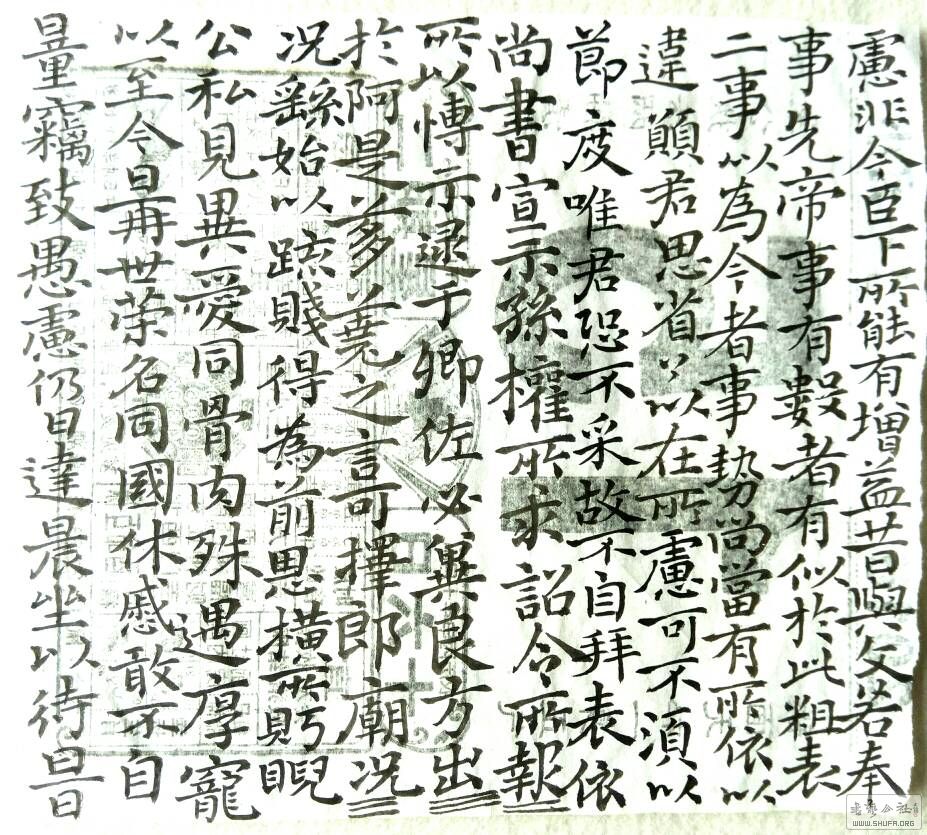 慮非今臣下所能有增益昔與文若奉
事先帝事有數者有似於此粗表
二事以為今者事勢尚當有所依以
違顛君思省以在所慮可不須以
節度唯君恐不采故不自拜表依
尚書宣示孫權所求詔令所報
所以博示逮于卿佐必冀良方出
於阿是芻蕘之言可擇郎廟况
况繇始以疏賤得為前恩横所眄睨
公私見異愛同骨肉殊遇厚寵
以至今日再世荣名同國休慼敢不自
量竊致愚慮仍日達晨坐以待旦
書藝公社
WWW.SHUFA.ORG